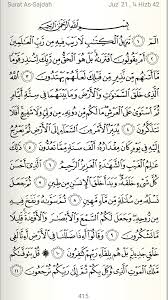 Surat As-Sajdah
Juz 21, ¼ Hizb 42
بِسْمِ ٱللَّهِ ٱلرَّحْمَٰنِ ٱلرَّحِيمِ
الٓمٓ ١ تَنزِيلُ ٱلْكِتَٰبِ لَا رَيْبَ فِيهِ مِن رَّبِّ ٱلْعَٰلَمِينَ ٢
أَمْ يَقُولُونَ ٱفْتَرَىٰهُ بَلْ هُوَ ٱلْحَقُّ مِن رَّبِّكَ لِتُنذِرَ قَوْمًا مَّآ
أَتَىٰهُم مِّن نَّذِيرٍ مِّن قَبْلِكَ لَعَلَّهُمْ يَهْتَدُونَ ٣ ٱللَّهُ ٱلَّذِى
خَلَقَ ٱلسَّمَٰوَٰتِ وَٱلْأَرْضَ وَمَا بَيْنَهُمَا فِى سِتَّةِ أَيَّامٍ ثُمَّ ٱسْتَوَىٰ
عَلَى ٱلْعَرْشِ مَا لَكُم مِّن دُونِهِۦ مِن وَلِىٍّ وَلَا شَفِيعٍ أَفَلَا
تَتَذَكَّرُونَ ٤ يُدَبِّرُ ٱلْأَمْرَ مِنَ ٱلسَّمَآءِ إِلَى ٱلْأَرْضِ ثُمَّ يَعْرُجُ
إِلَيْهِ فِى يَوْمٍ كَانَ مِقْدَارُهُۥٓ أَلْفَ سَنَةٍ مِّمَّا تَعُدُّونَ ٥ ذَٰلِكَ
عَٰلِمُ ٱلْغَيْبِ وَٱلشَّهَٰدَةِ ٱلْعَزِيزُ ٱلرَّحِيمُ ٦ ٱلَّذِىٓ أَحْسَنَ
كُلَّ شَىْءٍ خَلَقَهُۥ وَبَدَأَ خَلْقَ ٱلْإِنسَٰنِ مِن طِينٍ ٧ ثُمَّ جَعَلَ
نَسْلَهُۥ مِن سُلَٰلَةٍ مِّن مَّآءٍ مَّهِينٍ ٨ ثُمَّ سَوَّىٰهُ وَنَفَخَ فِيهِ
مِن رُّوحِهِۦ وَجَعَلَ لَكُمُ ٱلسَّمْعَ وَٱلْأَبْصَٰرَ وَٱلْأَفْـِٔدَةَ قَلِيلًا
مَّا تَشْكُرُونَ ٩ وَقَالُوٓا۟ أَءِذَا ضَلَلْنَا فِى ٱلْأَرْضِ أَءِنَّا لَفِى
خَلْقٍ جَدِيدٍۭ بَلْ هُم بِلِقَآءِ رَبِّهِمْ كَٰفِرُونَ ١٠ قُلْ يَتَوَفَّىٰكُم
مَّلَكُ ٱلْمَوْتِ ٱلَّذِى وُكِّلَ بِكُمْ ثُمَّ إِلَىٰ رَبِّكُمْ تُرْجَعُونَ ١١
415